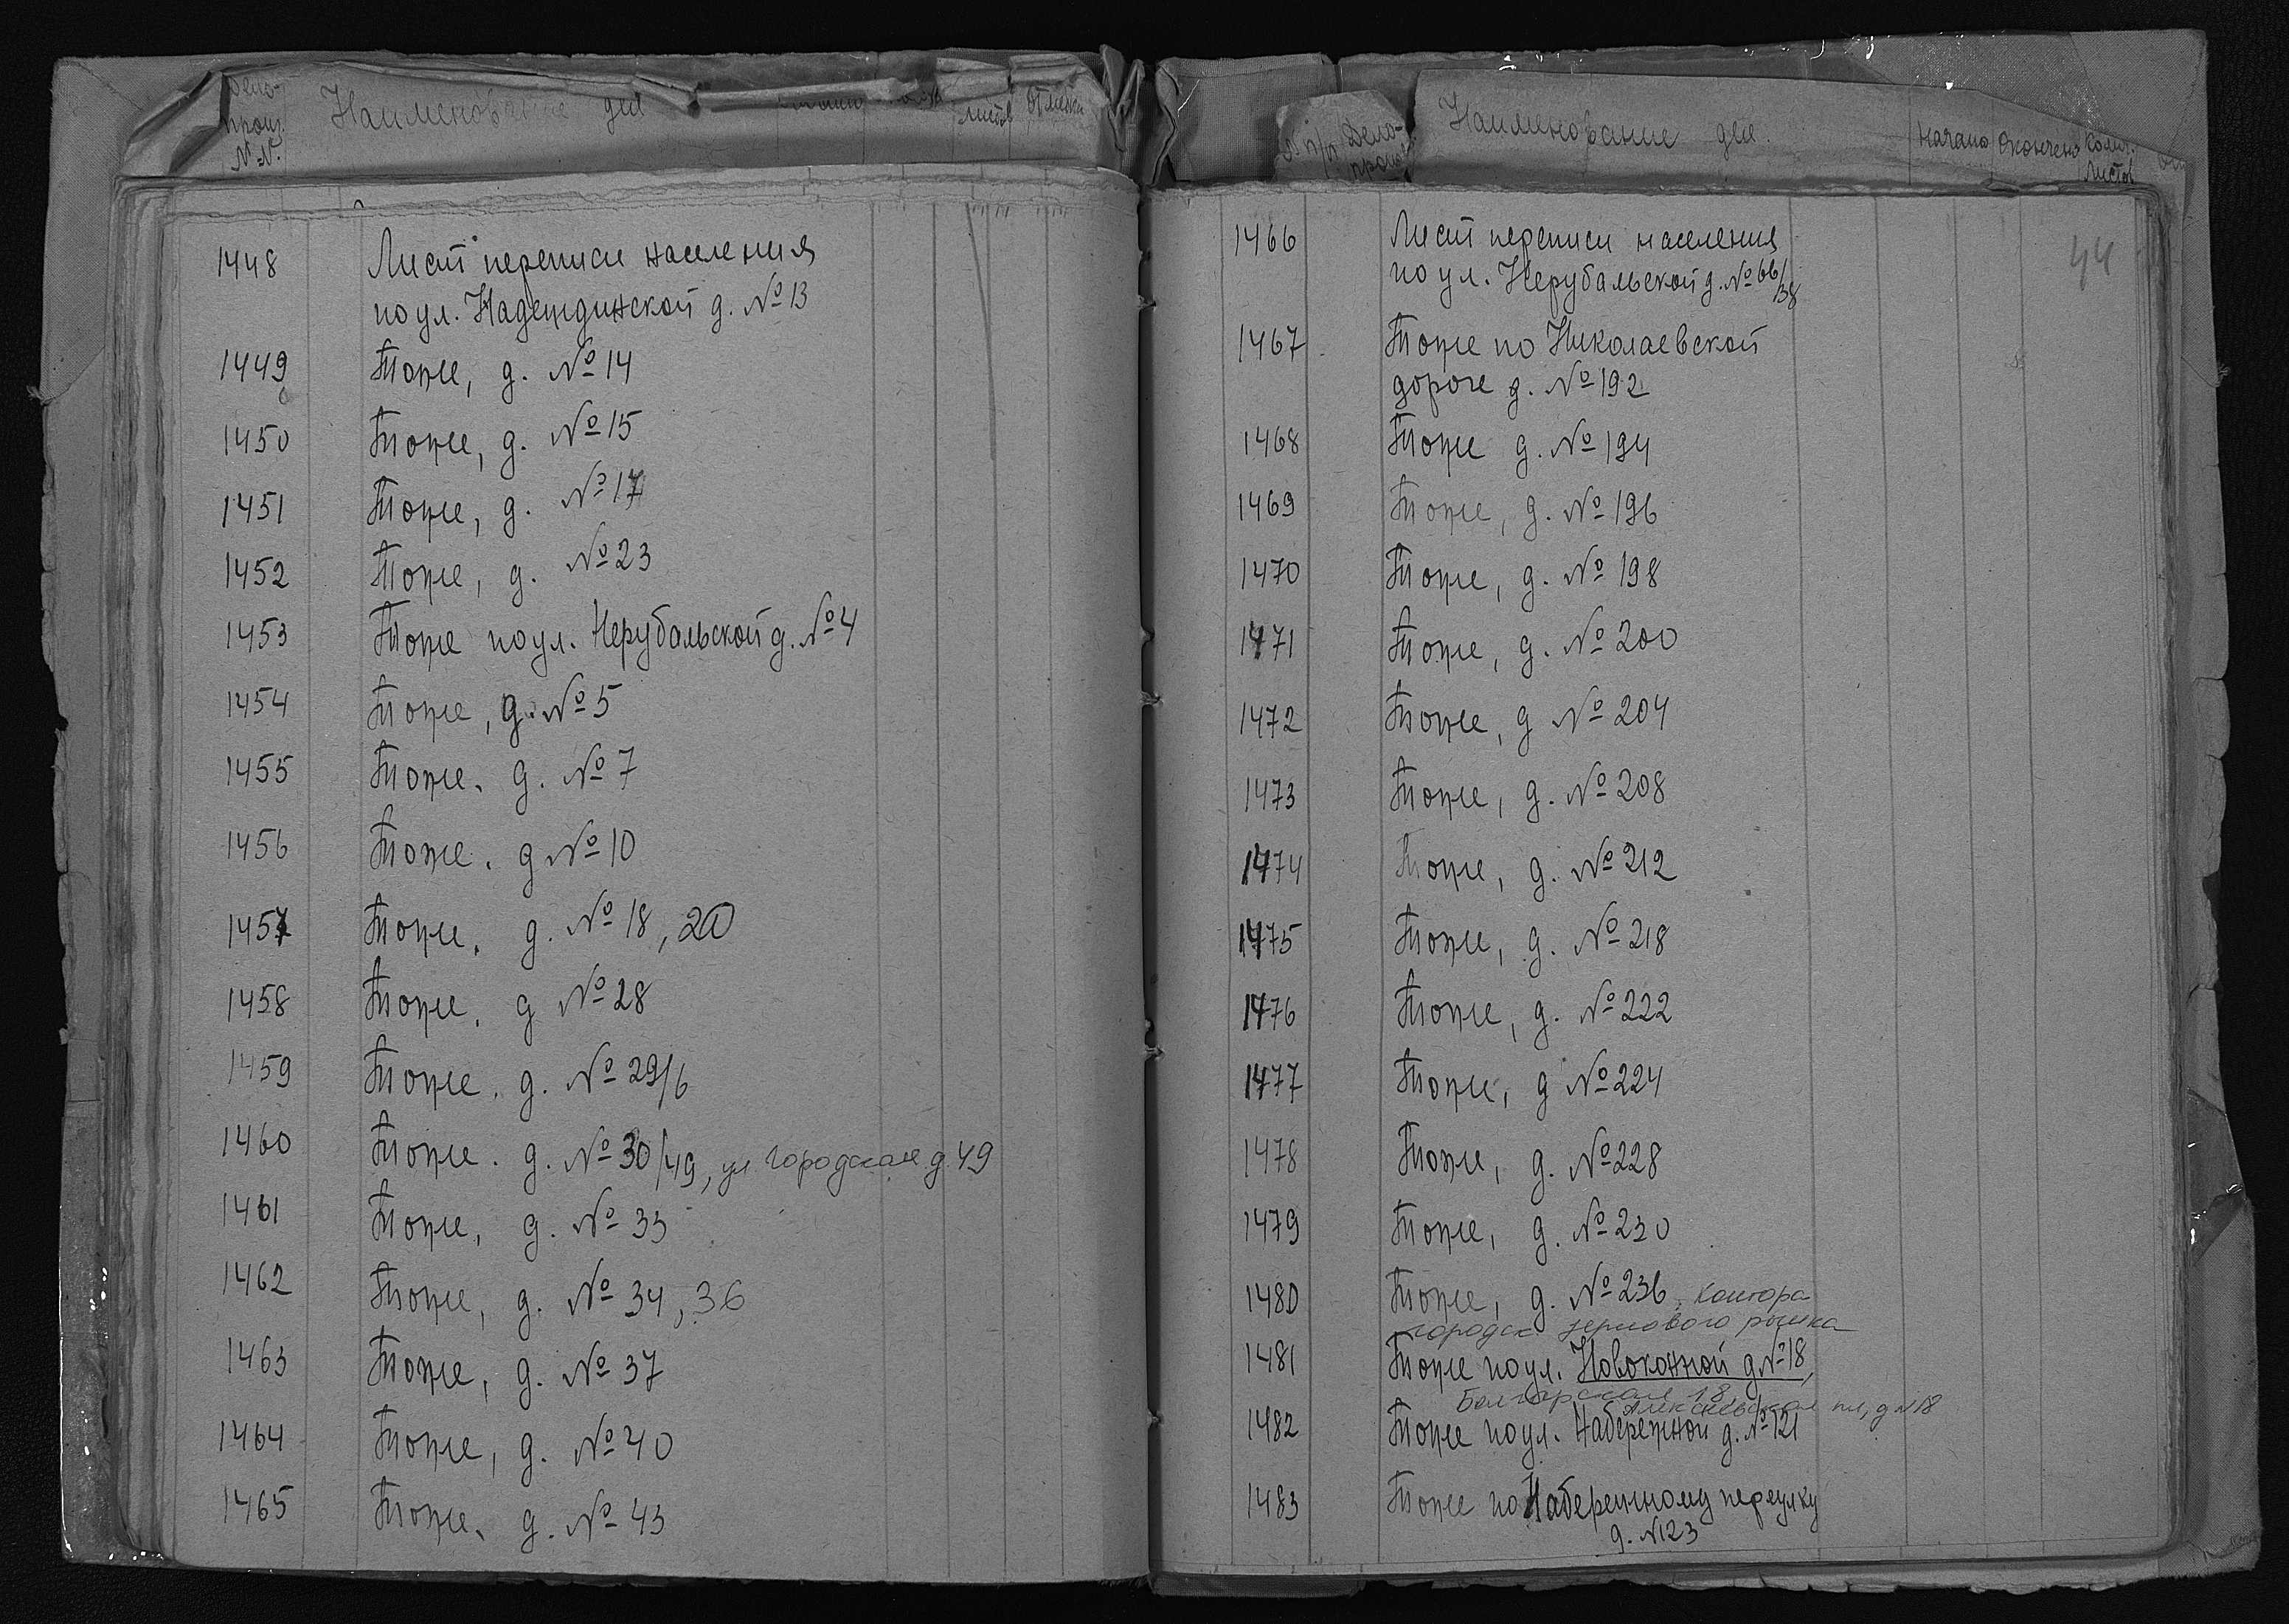 Дело-
произ.
№.№.
Наименование дел
листов
Отметки
1448 Лист переписи населения
по ул. Надеждинской д. № 13
1449 Тоже, д. № 14
1450 Тоже, д. № 15
1451 Тоже, д. № 17
1452 Тоже, д. № 23
1453 Тоже по ул. Нерубальской д. № 4
1454 Тоже, д. № 5
1455 Тоже. д. № 7
1456 Тоже. д № 10
1457 Тоже. д. № 18, 20
1458 Тоже. д № 28
1459 Тоже. д. № 29/6
1460 Тоже. д. № 30/49, ул Городская д 49
1461 Тоже, д. № 33
1462 Тоже, д. № 34, 36
1463 Тоже, д. № 37
1464 Тоже, д. № 40
1465 Тоже. д. № 43
№ п/п
Дело-
произ
Наименование дел.
Начато
Окончено
Колич.
Листов
44
1466 Лист переписи населения
по ул. Нерубальской д. № 66/
38
1467 Тоже по Николаевской
дороге д. № 192
1468 Тоже д. № 194
1469 Тоже, д. № 196
1470 Тоже, д. № 198
1471 Тоже, д. № 200
1472 Тоже, д № 204
1473 Тоже, д. № 208
1474 Тоже, д. № 212
1475 Тоже, д. № 218
1476 Тоже, д. № 222
1477 Тоже, д № 224
1478 Тоже, д. № 228
1479 Тоже, д. № 230
1480 Тоже, д. № 236, контора
городск. зернового рынка
1481 Тоже по ул. Новоконной д № 18,
Болгарская 18
Алексеевская пл, д N 18
1482 Тоже по ул. Набережной д. № 121
1483 Тоже по Набережному переулку
д. N 123